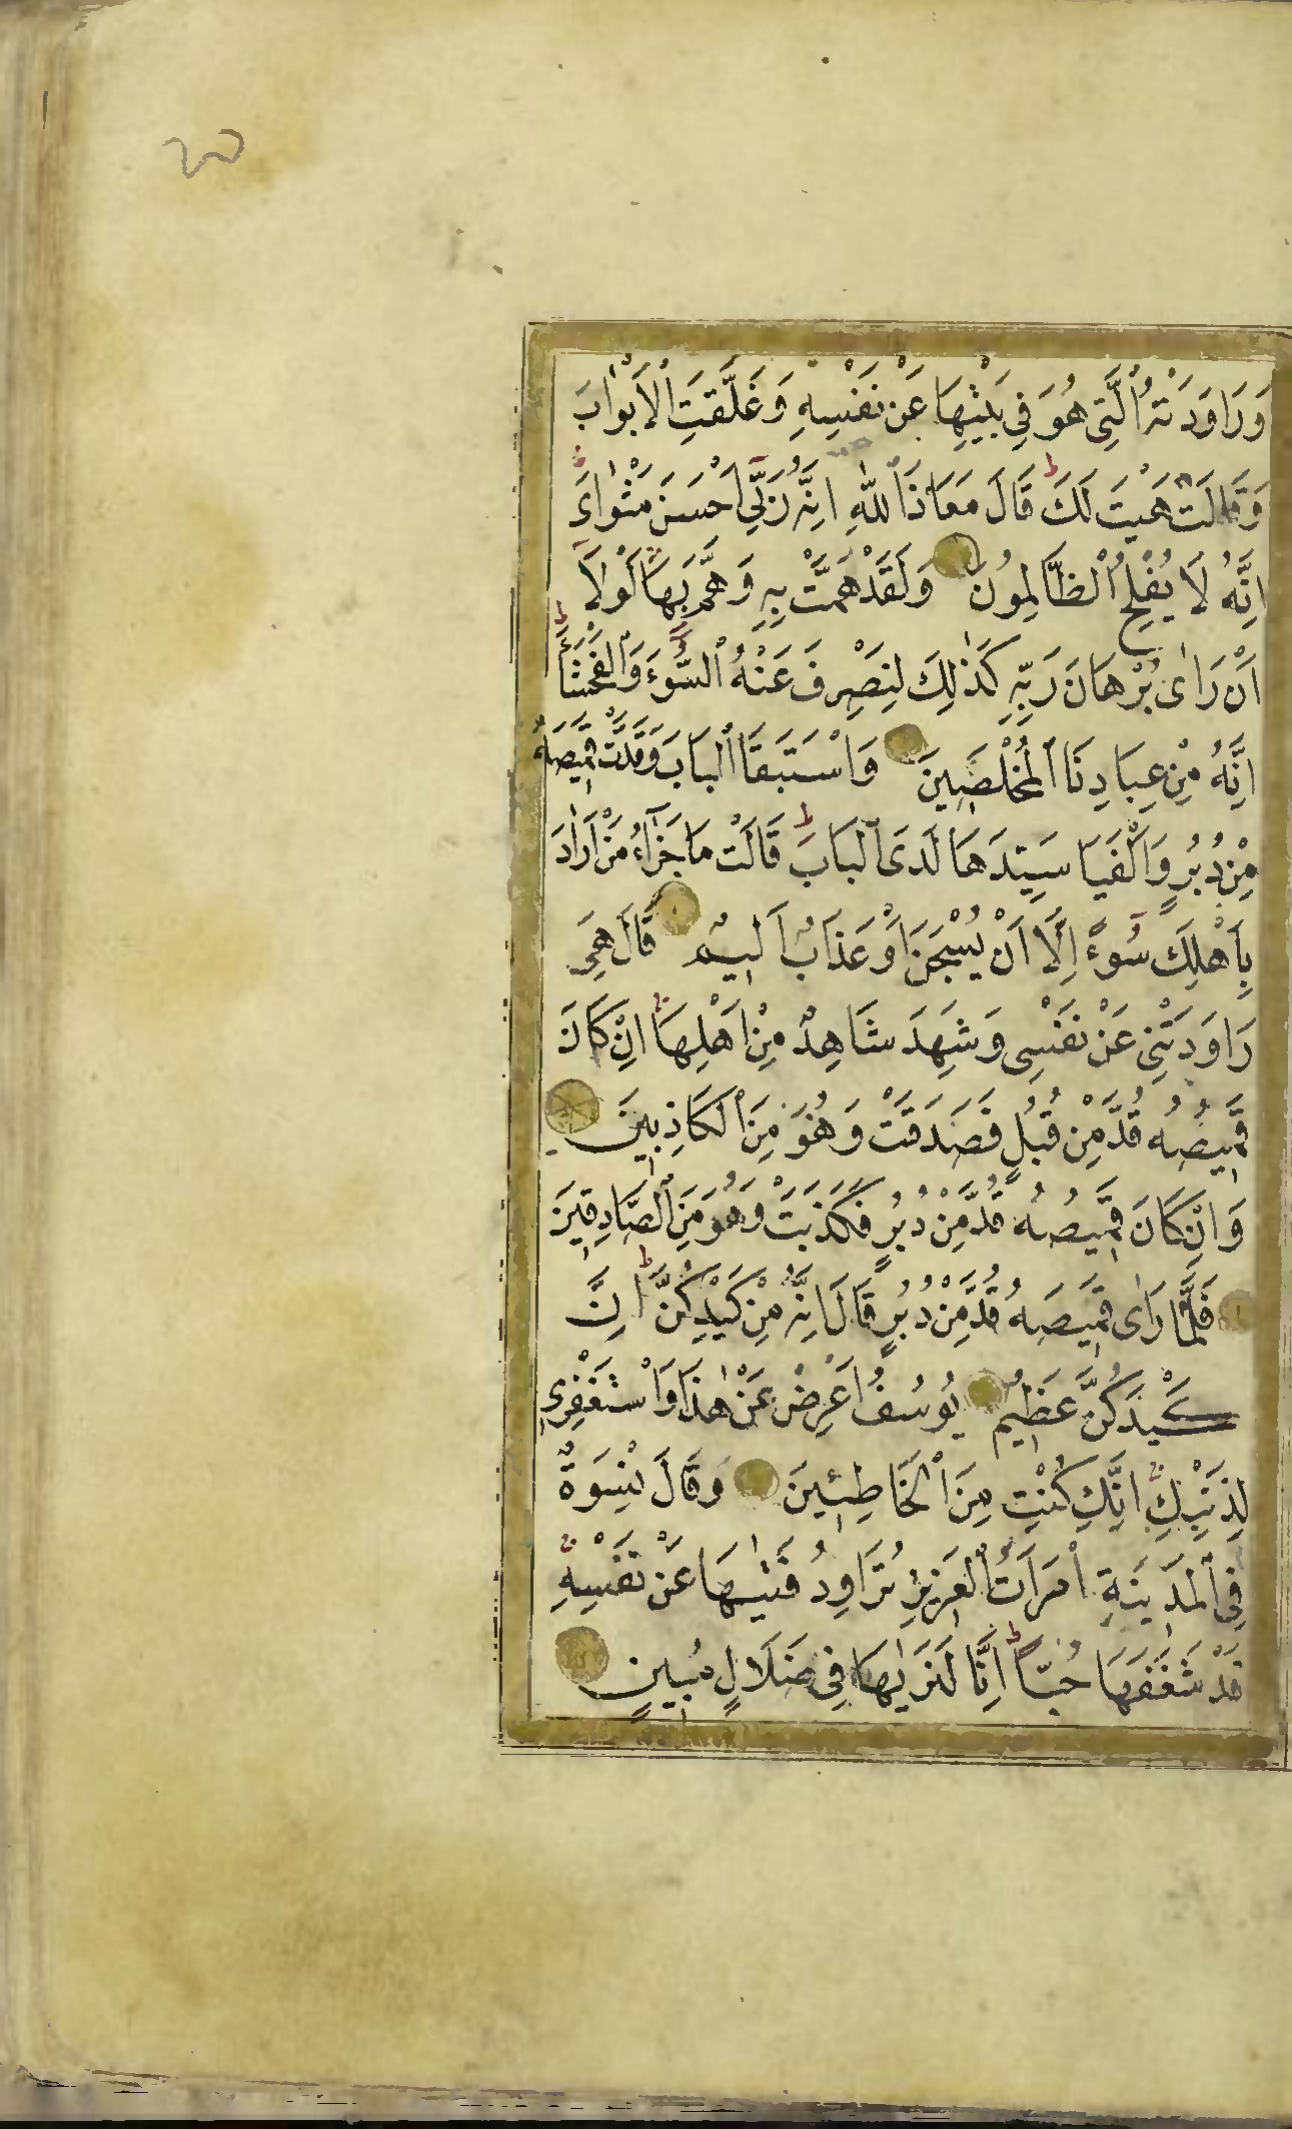 وَرَاوَدَتْهُ ٱلَّتِى هُوَ فِى بَيْتِهَا عَنْ نَفْسِهِ وَغَلَّقَتِ ٱلْاَبْوٰابَ
وَقَالَتْ هَيْتَ لَكَ ط قَالَ مَعَاذَ ٱللّٰهِ اِنَّهُ رَبّٖى اَحْسَنَ مَثْوٰاىَ
اِنَّهُ لَا يُفْلِحُ ٱلظَّالِمُونَ وَلَقَدْ هَمَّتْ بِهِ وَهَمَّ بِهَا لَوْلَا
اَنْ رَاٰى بُرْهَانَ رَبِّهِ كَذٰلِكَ لِنَصْرِفَ عَنْهُ ٱلسُّوٓءَ وَٱلْفَحْشَآءَ ط
اِنَّهُ مِنْ عِبَادِنَا ٱلْمُخْلَصٖينَ وَٱسْتَبَقَا ٱلْبَابَ وَقَدَّتْ قَمٖيصَهُ
مِنْ دُبُرٍ وَاَلْفَيَا سَيِّدَهَا لَدَى ٱلْبَابِ ط قَالَتْ مَا جَزَآءُ مَنْ اَرَادَ
بِاَهْلِكَ سُوٓءًا اِلَّٓا اَنْ يُسْجَنَ اَوْ عَذَابٌ اَلٖيمٌ قَالَ هِىَ
رَاوَدَتْنٖى عَنْ نَفْسٖى وَشَهِدَ شَاهِدٌ مِنْ اَهْلِهَا اِنْ كَانَ
قَمٖيصُهُ قُدَّ مِنْ قُبُلٍ فَصَدَقَتْ وَهُوَ مِنَ ٱلْكَاذِبٖينَ
وَاِنْ كَانَ قَمٖيصُهُ قُدَّ مِنْ دُبُرٍ فَكَذَبَتْ وَهُوَ مِنَ ٱلصَّادِقٖينَ
فَلَمَّا رَاٰى قَمٖيصَهُ قُدَّ مِنْ دُبُرٍ قَالَ اِنَّهُ مِنْ كَيْدِكُنَّ ط اِنَّ
كَيْدَكُنَّ عَظٖيمٌ يُوسُفُ اَعْرِضْ عَنْ هٰذَا وَٱسْتَغْفِرٖى
لِذَنْبِكِ اِنَّكِ كُنْتِ مِنَ ٱلْخَاطِئٖينَ وَقَالَ نِسْوَةٌ
فِى ٱلْمَدٖينَةِ ٱمْرَاَتُ ٱلْعَزٖيزِ تُرَاوِدُ فَتٰيهَا عَنْ نَفْسِهِ
قَدْ شَغَفَهَا حُبًّا ط اِنَّا لَنَرٰيهَا فٖى ضَلَالٍ مُبٖينٍ